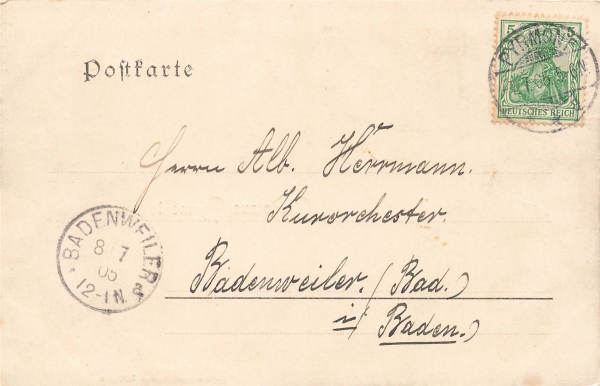 Postkarte
5 5
PYRMONT
DEUTSCHES REICH
Herrn Alb. Herrmann.
Kurorchester.
Badenweiler. (Bad.)
i/ Baden.)
BADENWEILER
8 7
05
12-1 N.